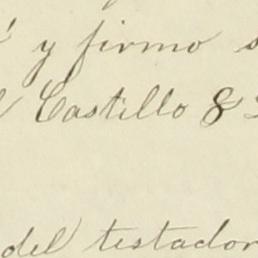 y firmo
Castillo 8
del testador